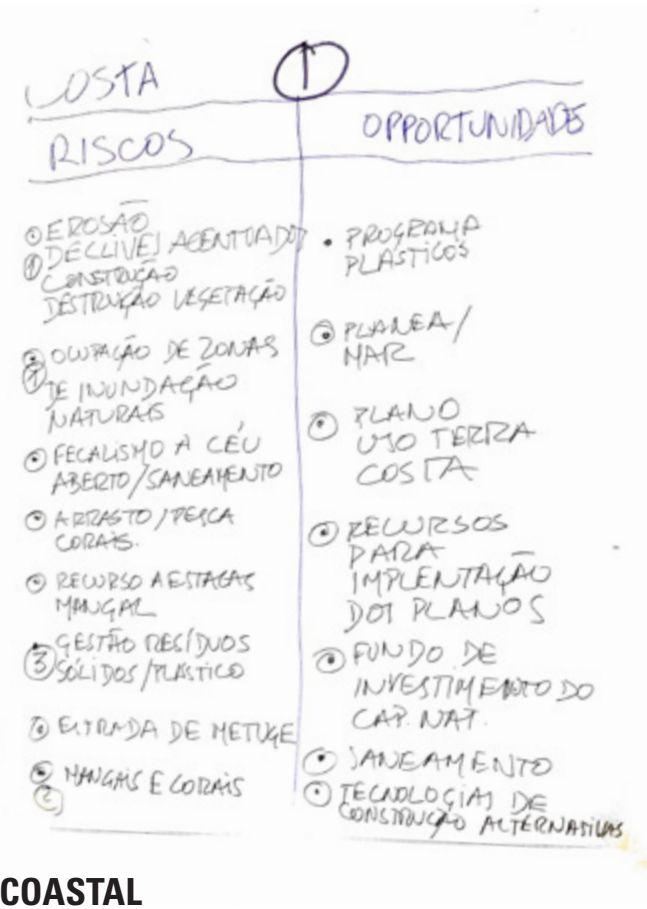 COSTA
1
RISCOS
OPPORTUNIDADES
EROSÃO
1 DECLIVES ACENTUADOS
CONSTRUÇÃO
DESTRUIÇÃO VEGETAÇÃO
OCUPAÇÃO DE ZONAS
1 DE INUNDAÇÃO
NATURAIS
FECALISMO A CÉU
ABERTO/SANEAMENTO
ARRASTO/PESCA
CORAIS.
RECURSO A ESTACAS
MANGAL
GESTÃO RESÍDUOS
3 SÓLIDOS/PLASTICO
ENTRADA DE METUGE
MANGAIS E CORAIS
2
PROGRAMA
PLASTICOS
PLANEA/
MAR
PLANO
USO TERRA
COSTA
RECURSOS
PARA
IMPLENTAÇÃO
DOS PLANOS
FUNDO DE
INVESTIMENTO DO
CAP. NAT.
SANEAMENTO
TECNOLOGIAS DE
CONSTRUÇÃO ALTERNATIVAS
COASTAL